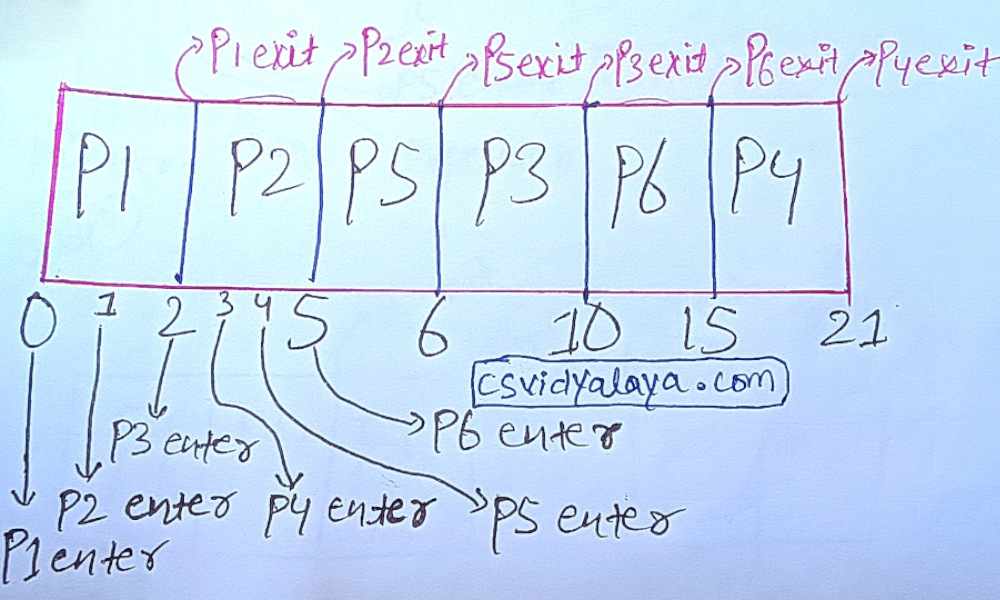 P1 exit P2 exit P5 exit P3 exit P6 exit P4 exit
P1 P2 P5 P3 P6 P4
0 1 2 3 4 5 6 10 15 21
csvidyalaya.com
P3 enter P6 enter
P2 enter P4 enter P5 enter
P1 enter